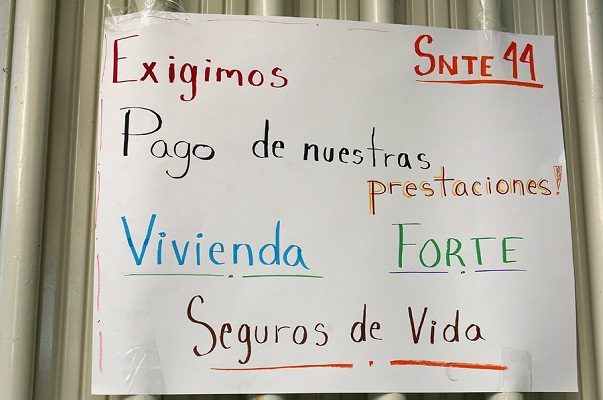 Exigimos
SNTE 44
Pago de nuestras
prestaciones!
Vivienda
FORTE
Seguros de Vida